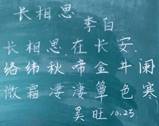 长相思 李白
长相思,在长安.
络纬秋啼金井阑
微霜凄凄簟色寒
吴旺 10.25